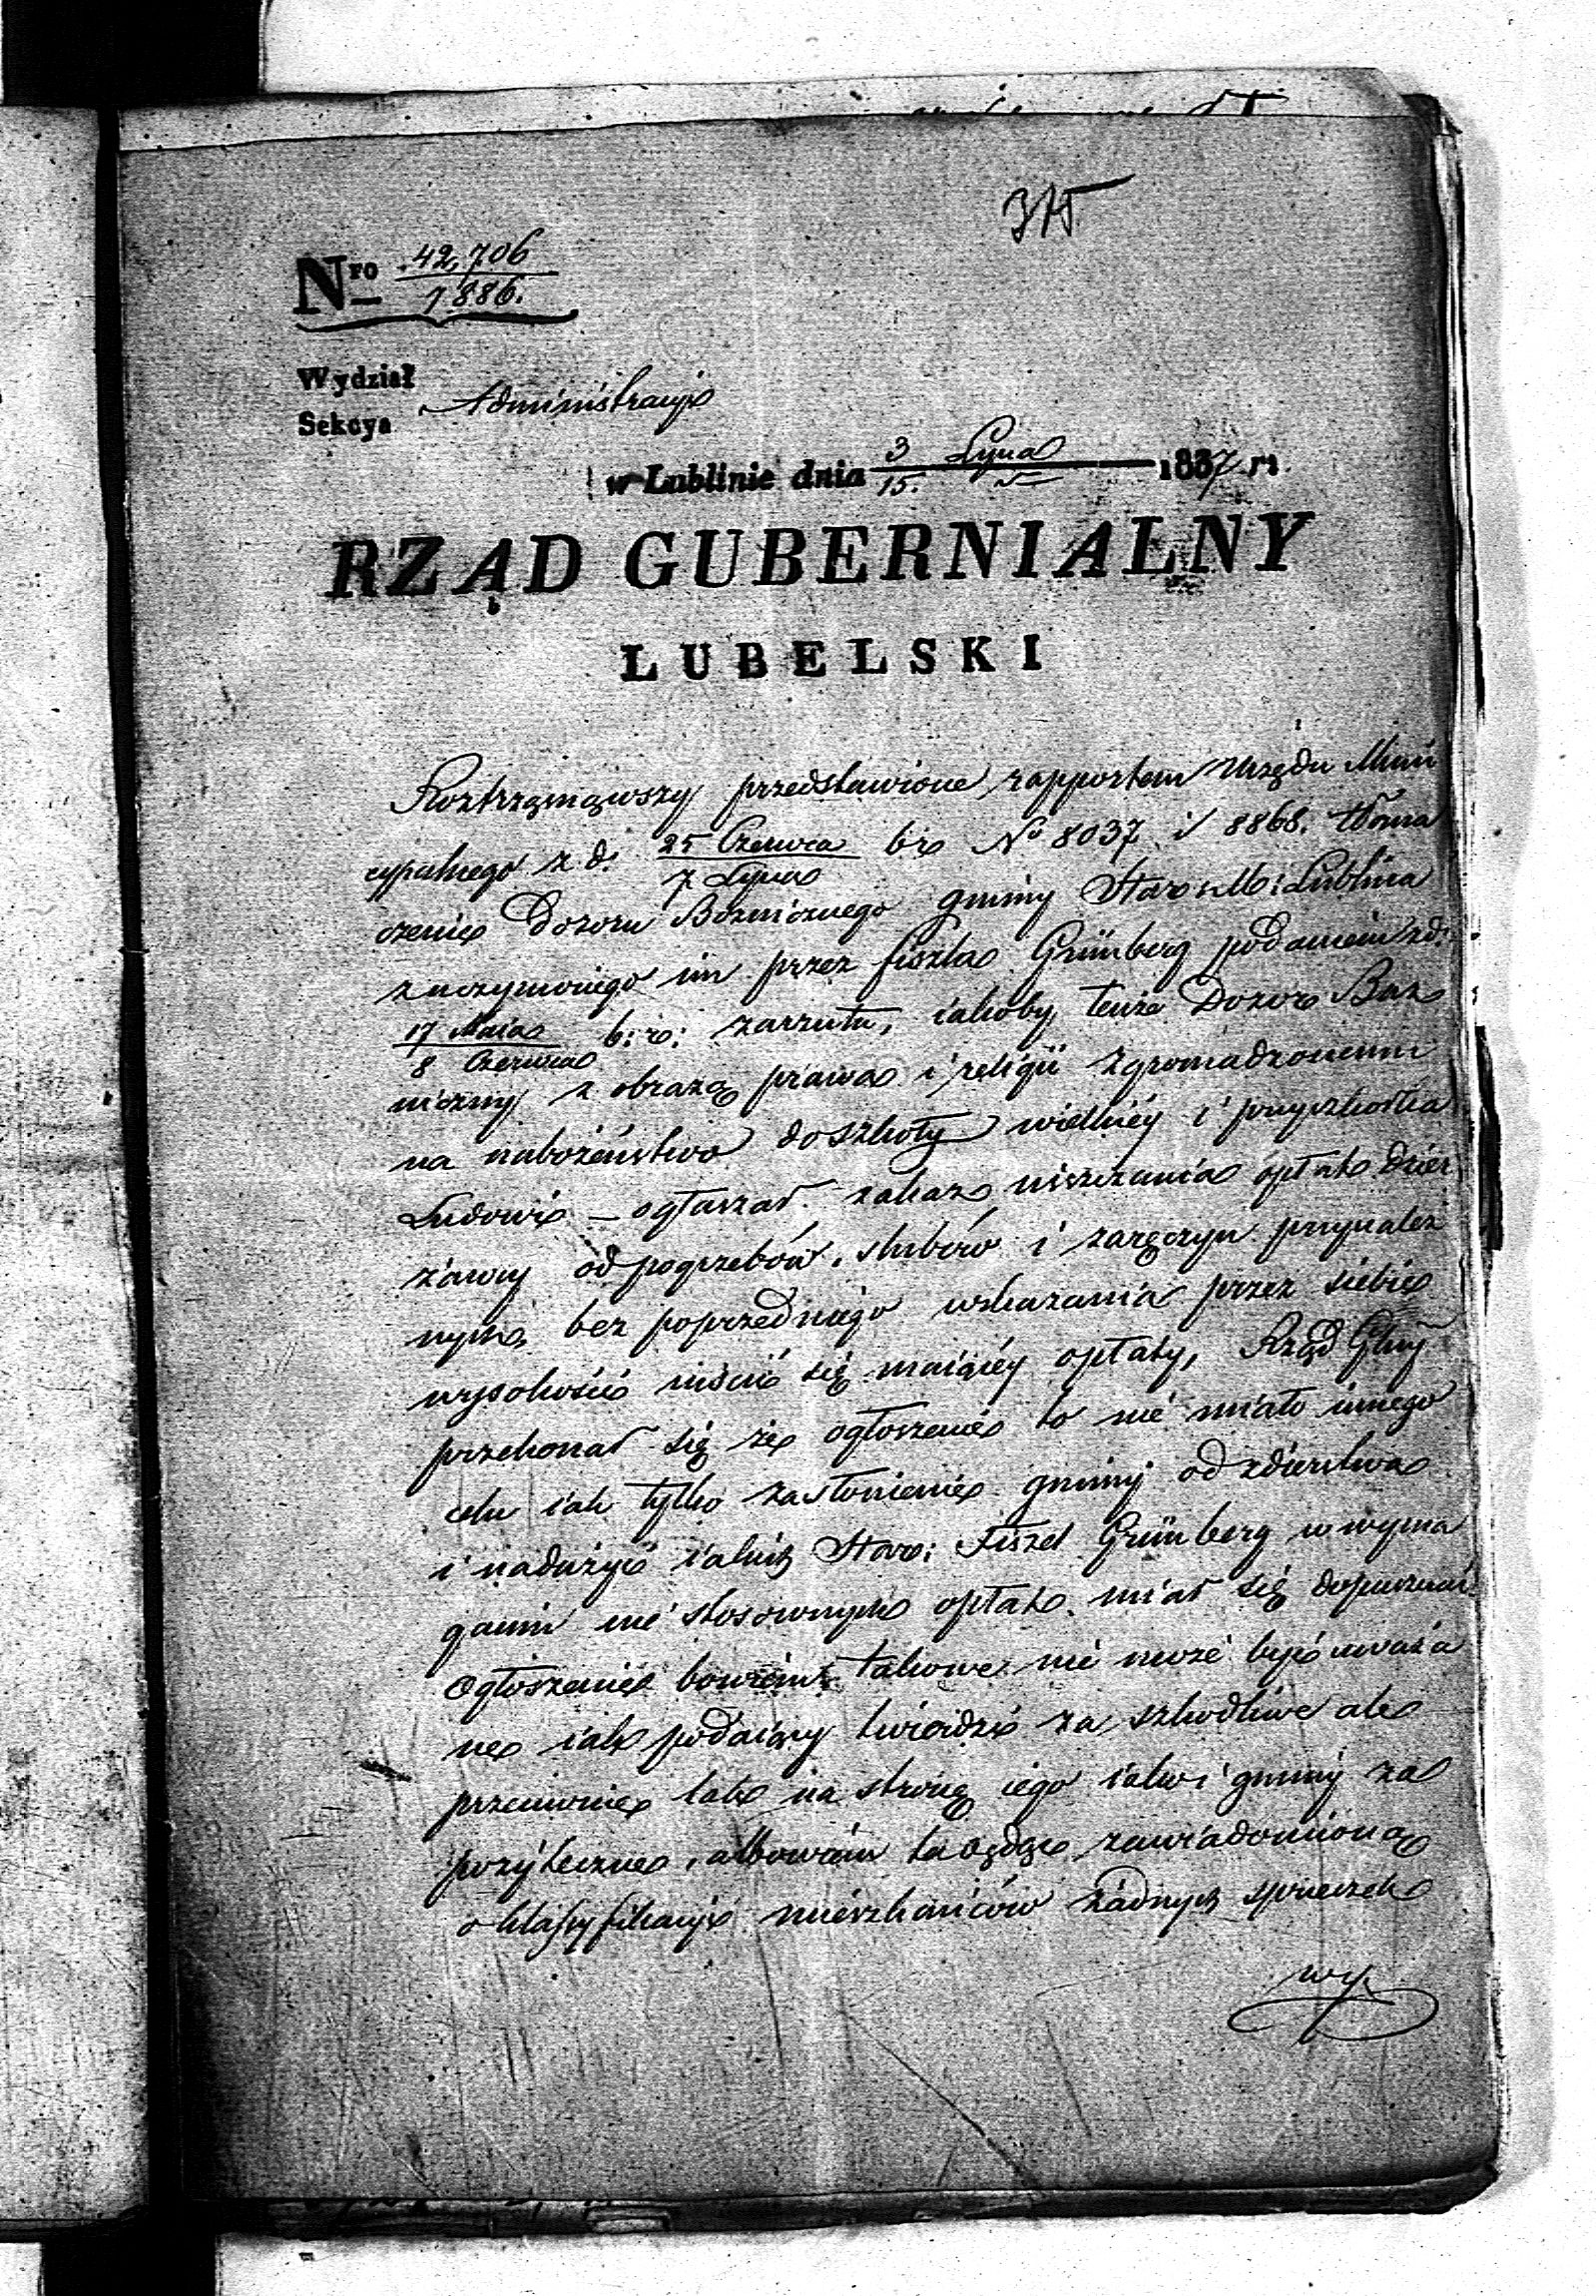 375.
Nro 42,706
7886.
Wydział
Sekcya Administracyi
w Lublinie dnia 3 Lipca 1837 r.
15.
RZĄD GUBERNIALNY
LUBELSKI
Roztrząsnąwszy przedstawione rapportem Urzędu Muni
cypalnego z d. 25 Czerwca br No 8037 i 8868. tłóma
7 Lipca
czenie Dozoru Bóżniczego gminy Star: M: Lublina
z uczynionego im przez Fiszla Grünberg podaniem z d:
17 Maia b: r: zarzutu, iakoby tenże Dozor Boż
8 Czerwca
niczny z obrazą prawa i religii zgromadzonemu
na nabożeństwo do szkoły wielkiéy i przyszkółka
Ludowi – ogłaszał zakaz uiszczania opłat dzier
żawcy od pogrzebów, slubów i zaręczyn przynależ
nych, bez poprzedniego wskazania przez siebie
wysokości uiścić się maiącéy opłaty, Rząd Glny
przekonał się że ogłoszenie to nie miało innego
celu iak tylko zasłonienie gminy od zdzierstwa
i nadużyć iakich Staro: Fiszel Grünberg w wyma
ganiu nie stosownych opłat miał się dopuszczać
Ogłoszenie bowiem takowe nie może być uważa
ne iak podaiący twierdzi za szkodliwe ale
przeciwnie tak na stronę iego iako i gminy za
pożyteczne, albowiem ta będąc zawiadomioną
o klassyfikacyi mieszkańców żadnych sprzeczek
wy